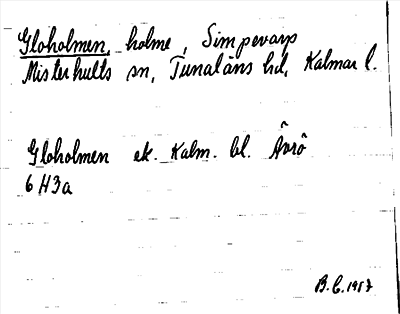 Gloholmen, holme, Simpevarp
Misterhults sn, Tunaläns hd, Kalmar l.
Gloholmen ek. Kalm. bl. Ävrö
6 H3a
B.C. 1957